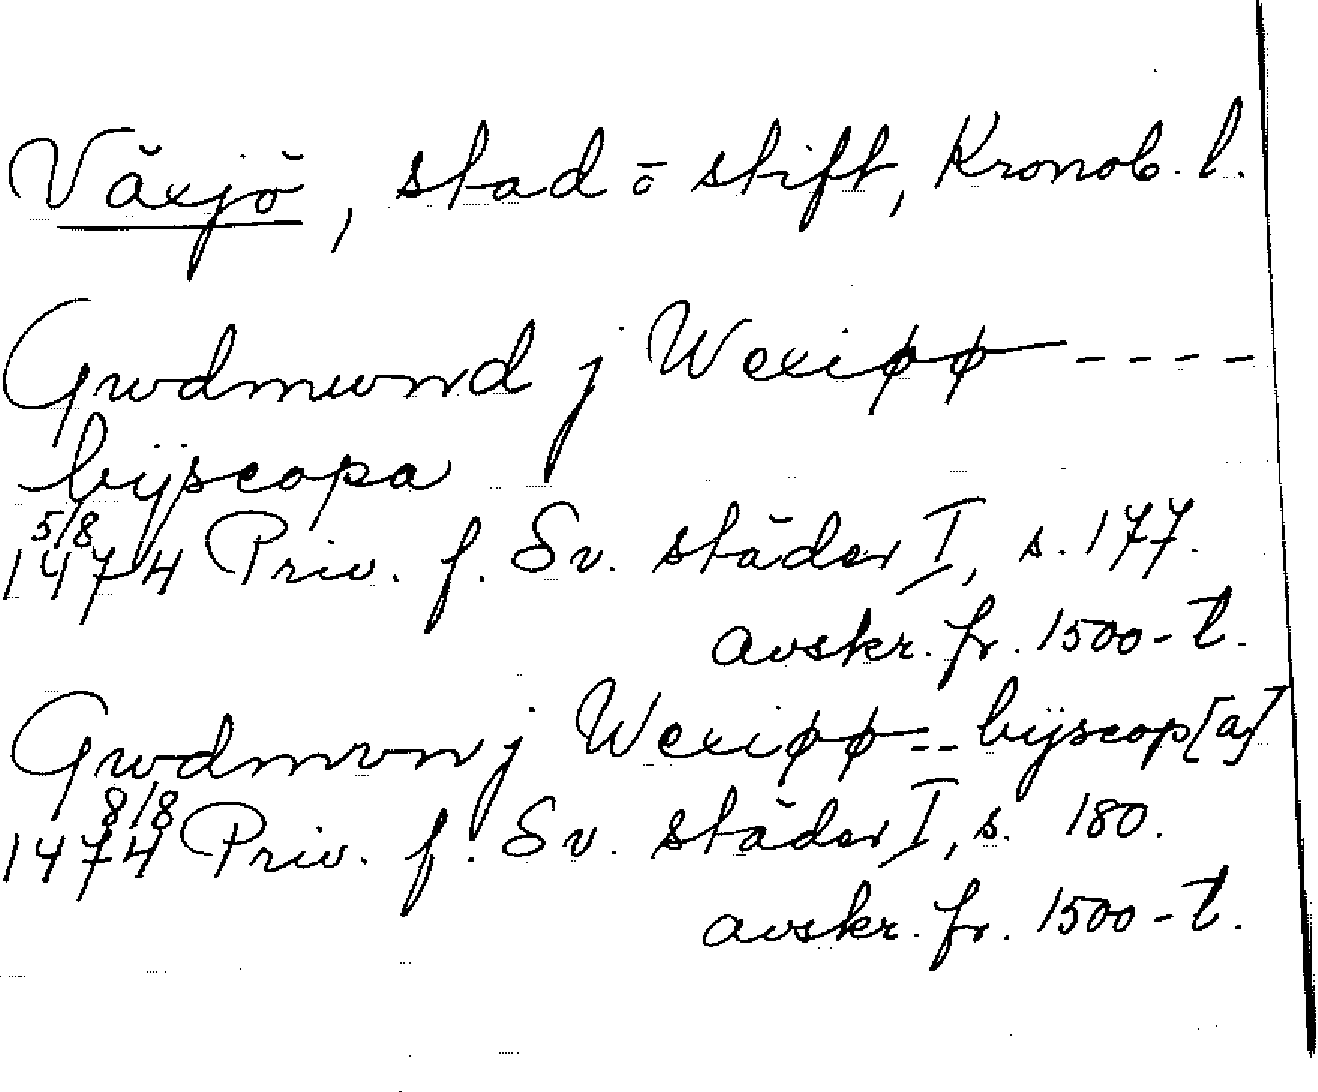 Växjö, stad o stift, Kronob. l.
Gwdmwnd j Wexiøø - - - -
bÿscopa
5/8
1474 Priv. f. Sv. städer I, s. 177.
avskr. fr. 1500-t.
Gwdmvn j Wexiøø -- bÿscop[a]
8/8
1474 Priv. f. Sv. städer I, s. 180.
avskr. fr. 1500-t.